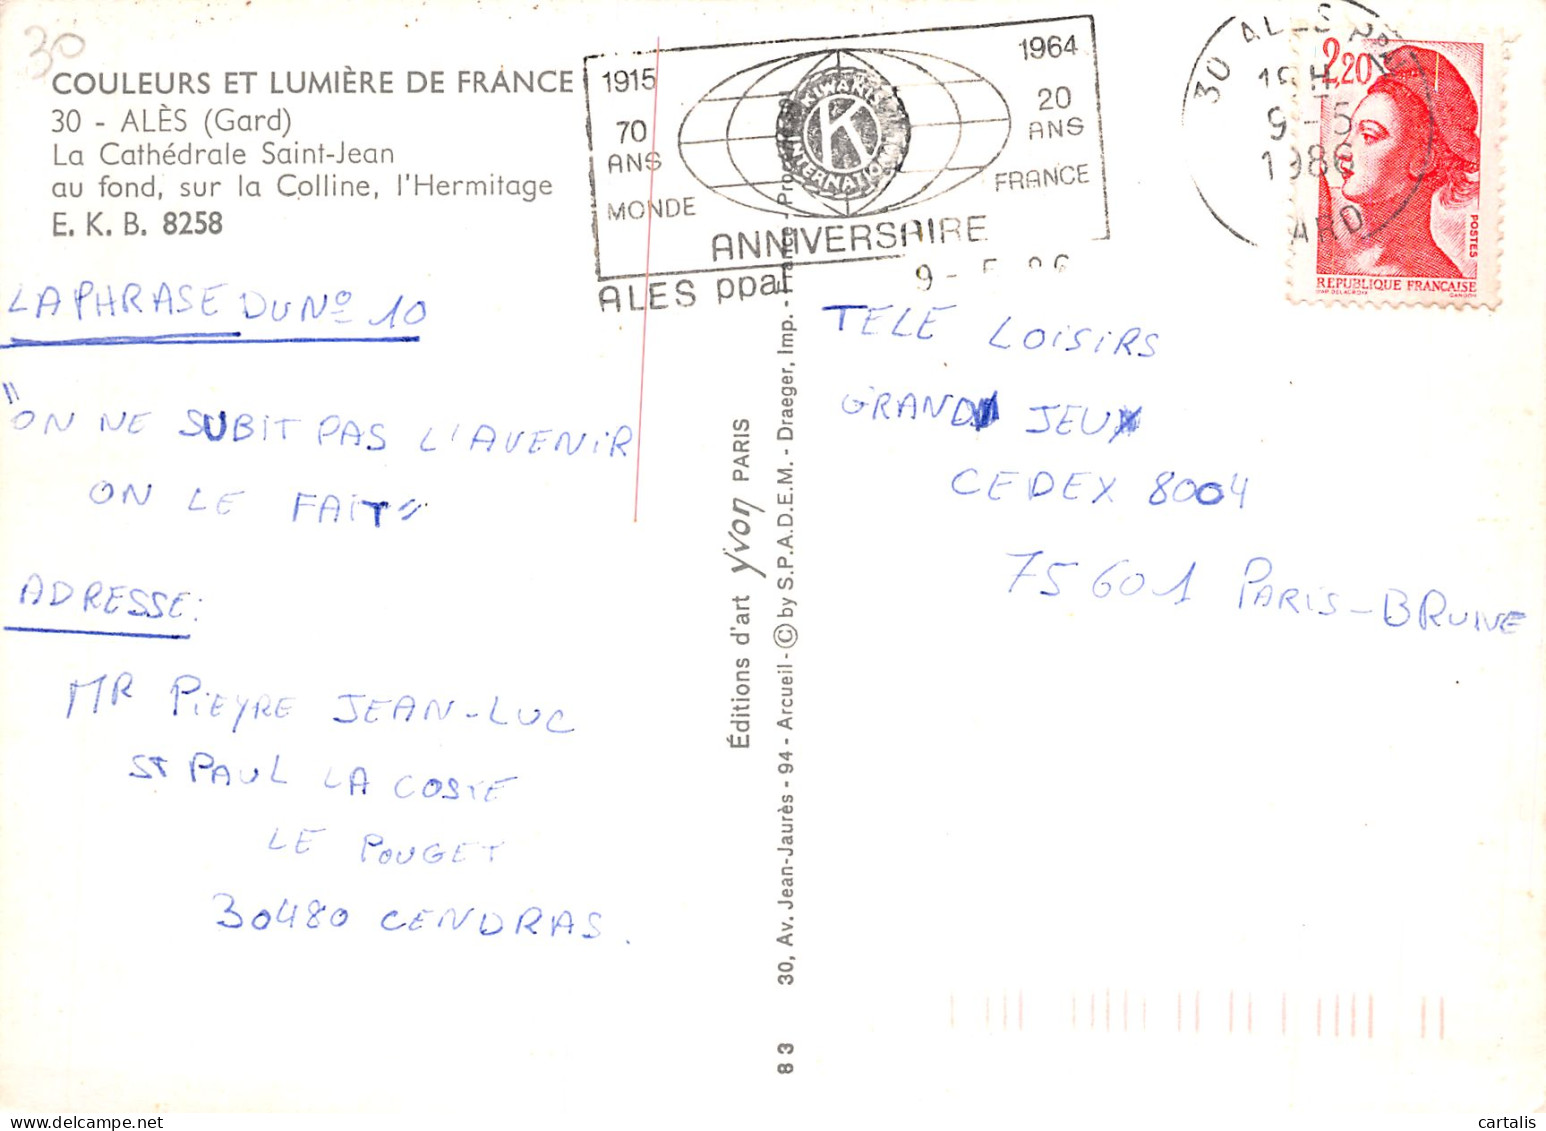 30
COULEURS ET LUMIÈRE DE FRANCE
30 - ALÈS (Gard)
La Cathédrale Saint-Jean
au fond, sur la Colline, l'Hermitage
E. K. B. 8258
1915
70
ANS
MONDE
KIWANIS
K
INTERNATIONAL
1964
20
ANS
FRANCE
ANNIVERSAIRE
ALES ppal
9 - 5 86
30 ALES PPAL
9 - 5
1986
GARD
2,20
POSTES
REPUBLIQUE FRANÇAISE
D'AP. DELACROIX GANDON
LA PHRASE DU Nº 10
"ON NE SUBIT PAS L'AVENIR
ON LE FAIT"
ADRESSE:
MR PIEYRE JEAN-LUC
ST PAUL LA COSTE
LE POUGET
30480 CENDRAS.
Éditions d'art Yvon PARIS
30, Av. Jean-Jaurès - 94 - Arcueil - © by S.P.A.D.E.M. - Draeger, Imp. - France -
8 3
TELE LOISIRS
GRAND JEU
CEDEX 8004
75601 PARIS-BRUNE
www.cartalis.com
cartalis